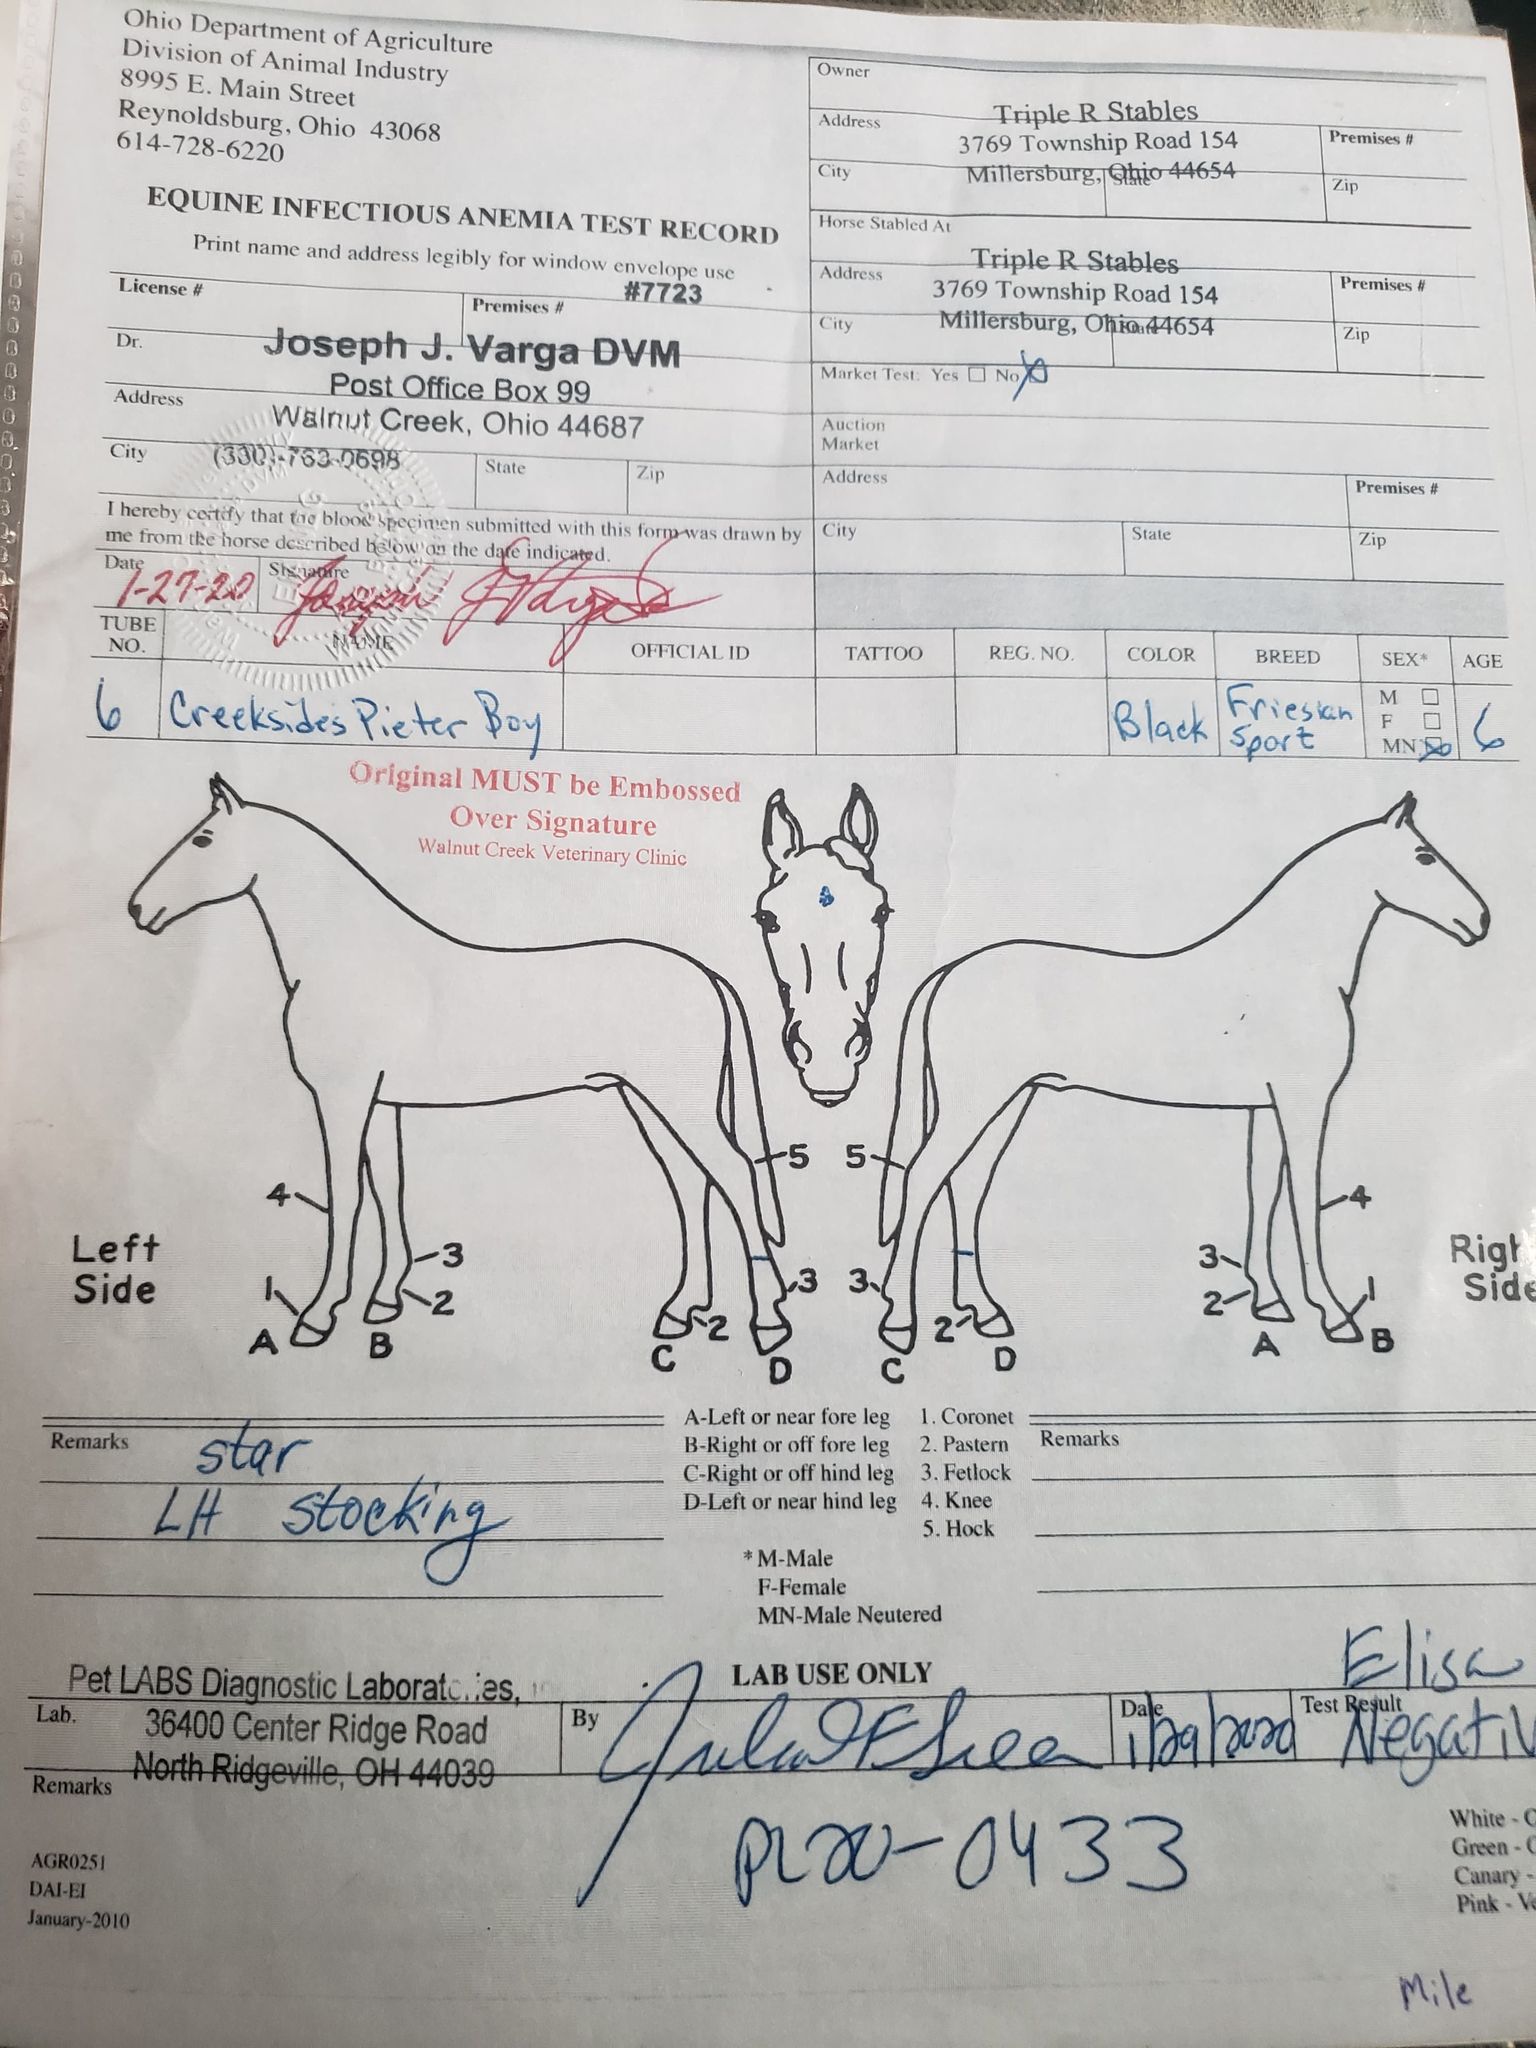 Ohio Department of Agriculture
Division of Animal Industry
8995 E. Main Street
Reynoldsburg, Ohio 43068
614-728-6220
EQUINE INFECTIOUS ANEMIA TEST RECORD
Print name and address legibly for window envelope use
License #
Premises #
#7723
Dr.
Joseph J. Varga DVM
Post Office Box 99
Address
Walnut Creek, Ohio 44687
City
(330)-763-0698
State
Zip
I hereby certify that the blood specimen submitted with this form was drawn by
me from the horse described below on the date indicated.
Date
1-27-20
Signature
Owner
Triple R Stables
Address
3769 Township Road 154
Premises #
City
Millersburg, Ohio 44654
State
Zip
Horse Stabled At
Triple R Stables
Address
3769 Township Road 154
Premises #
City
Millersburg, Ohio 44654
State
Zip
Market Test: Yes No
Auction
Market
Address
Premises #
City
State
Zip
TUBE NO. NAME OFFICIAL ID TATTOO REG. NO. COLOR BREED SEX* AGE
6 Creeksides Pieter Boy Black Friesian Sport 6
M
F
MN
Original MUST be Embossed
Over Signature
Walnut Creek Veterinary Clinic
Left
Side
4
1
A
3
2
B
C
2
5
3
D
5
3
C
2
D
3
2
A
4
1
B
Side
Remarks
star
LH stocking
A-Left or near fore leg
B-Right or off fore leg
C-Right or off hind leg
D-Left or near hind leg
1. Coronet
2. Pastern
3. Fetlock
4. Knee
5. Hock
Remarks
* M-Male
F-Female
MN-Male Neutered
LAB USE ONLY
Elisa
Pet LABS Diagnostic Laboratories,
Lab.
36400 Center Ridge Road
North Ridgeville, OH 44039
By
Date
Test Result
Remarks
PL20-0433
AGR0251
DAI-EI
January-2010
White -
Green -
Canary -
Pink -
Mile